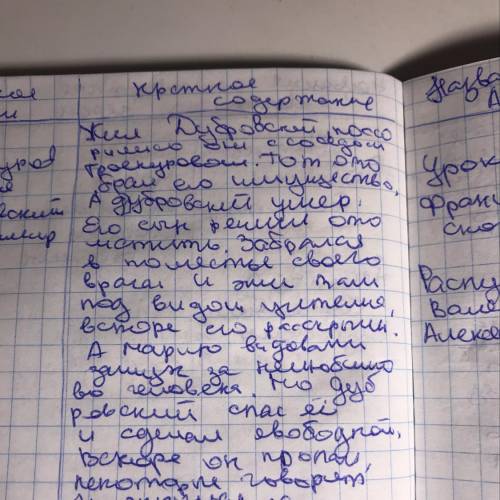 краткое
содержание
Назва
А
Жил Дубровский поссо
рились они с соседом
Троекуровом. Тот ото
брал его имущество,
А дубровский умер.
Его сын решил ото
мстить. Забрался
в поместье своего
врага и жил там
под видом учителя,
вскоре его раскрыли.
А марию выдовали
замуж за нелюбимо
во человека. Но дуб
ровский спас её
и сделал свободной,
Вскоре он пропал,
некоторые говорят,
уров
вский
имир
Урок
Франц
ско
Распу
Вале
Алексе